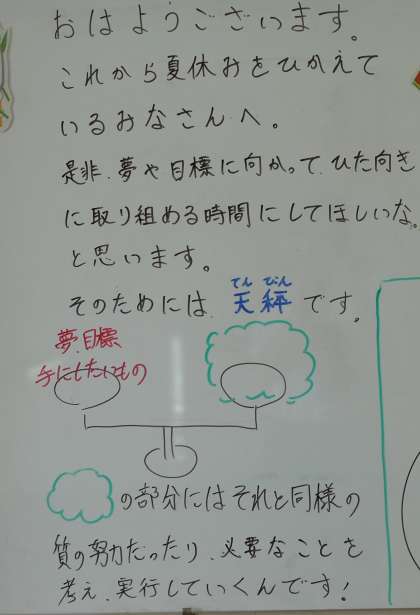 おはようございます。
これから夏休みをひかえて
いるみなさんへ。
是非、夢や目標に向かって、ひた向き
に取り組める時間にしてほしいな。
と思います。
そのためには、天秤です。
てんびん
夢、目標
手にしたいもの
の部分にはそれと同様の
質の努力だったり、必要なことを
考え、実行していくんです!